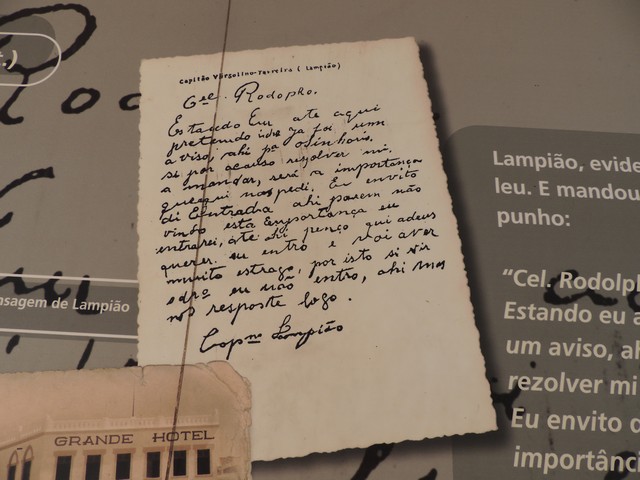 Capitão Virgolino Ferreira (Lampião)
Cel. Rodopho.
Estando Eu ate aqui
pretendo idr ja foi um
a viso, ahi pa o Sinhoris,
si por acauso rezolver mi
a mandar, será a importança
que aqui nos pedi. Eu envito
di Entrada ahi porem não
vindo esta Emportança eu
entrarei, ate ahi penço qui adeus
querer. eu entro e vai aver
muito estrago, por isto si vir
o drº eu não entro, ahi mas
nos resposte logo.
Capm Lampião
Lampião, evide
leu. E mandou
punho:
"Cel. Rodolph
Estando eu a
um aviso, ah
rezolver mi
Eu envito d
importânci
nsagem de Lampião
GRANDE HOTEL
Rod